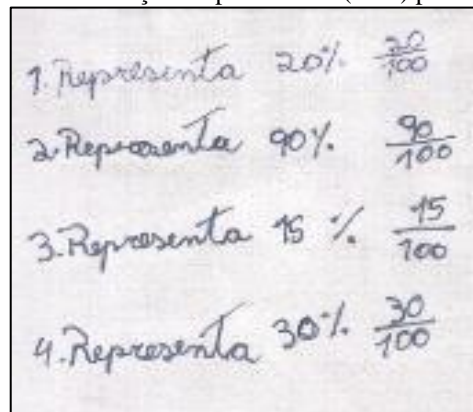 1. Representa 20% 20/100
2. Representa 90% 90/100
3. Representa 15% 15/100
4. Representa 30% 30/100